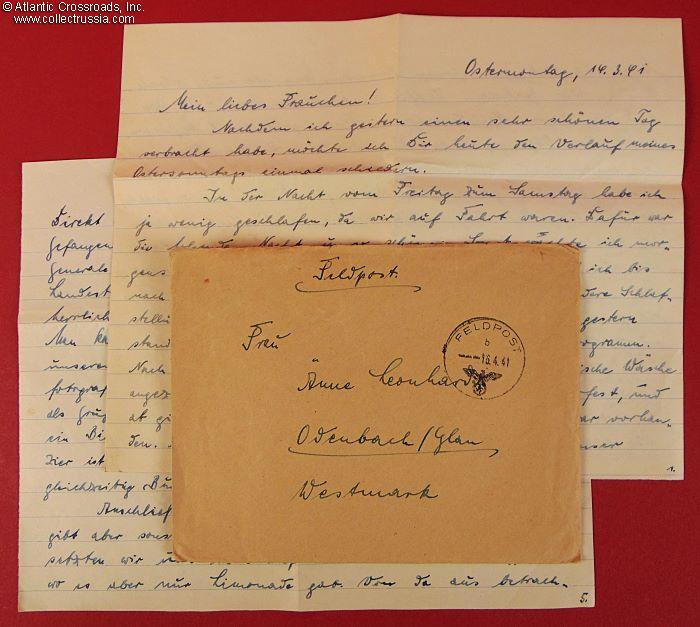 © Atlantic Crossroads, Inc.
www.collectrussia.com
Ostermontag, 14.3.41
Mein liebes Frauchen!
Nachdem ich gestern einen sehr schönen Tag
verbracht habe, möchte ich Dir heute den Verlauf meines
Ostersonntags einmal schildern.
In der Nacht vom Freitag zum Samstag habe ich
ja wenig geschlafen, da wir auf Fahrt waren. Dafür war
die Nacht ich mor-
gens ich bis
nach Schlaf-
stell gestern
stand
Nach Wäsche
angez und
at gi vorhan-
den. unser
1.
Direkt
gefangen
General
Landest
herrlich
Man ka
unseren
fotograf
als Grup
ein Bi
Hier ist
gleichzeitig
Anschließ
gibt aber sons
setzten wir
wo es aber nur Limonade gab. Von da aus betrach-
5.
Feldpost
Frau
Änne Leonhard
Odenbach/Glan
Westmark
FELDPOST
b
16.4.41